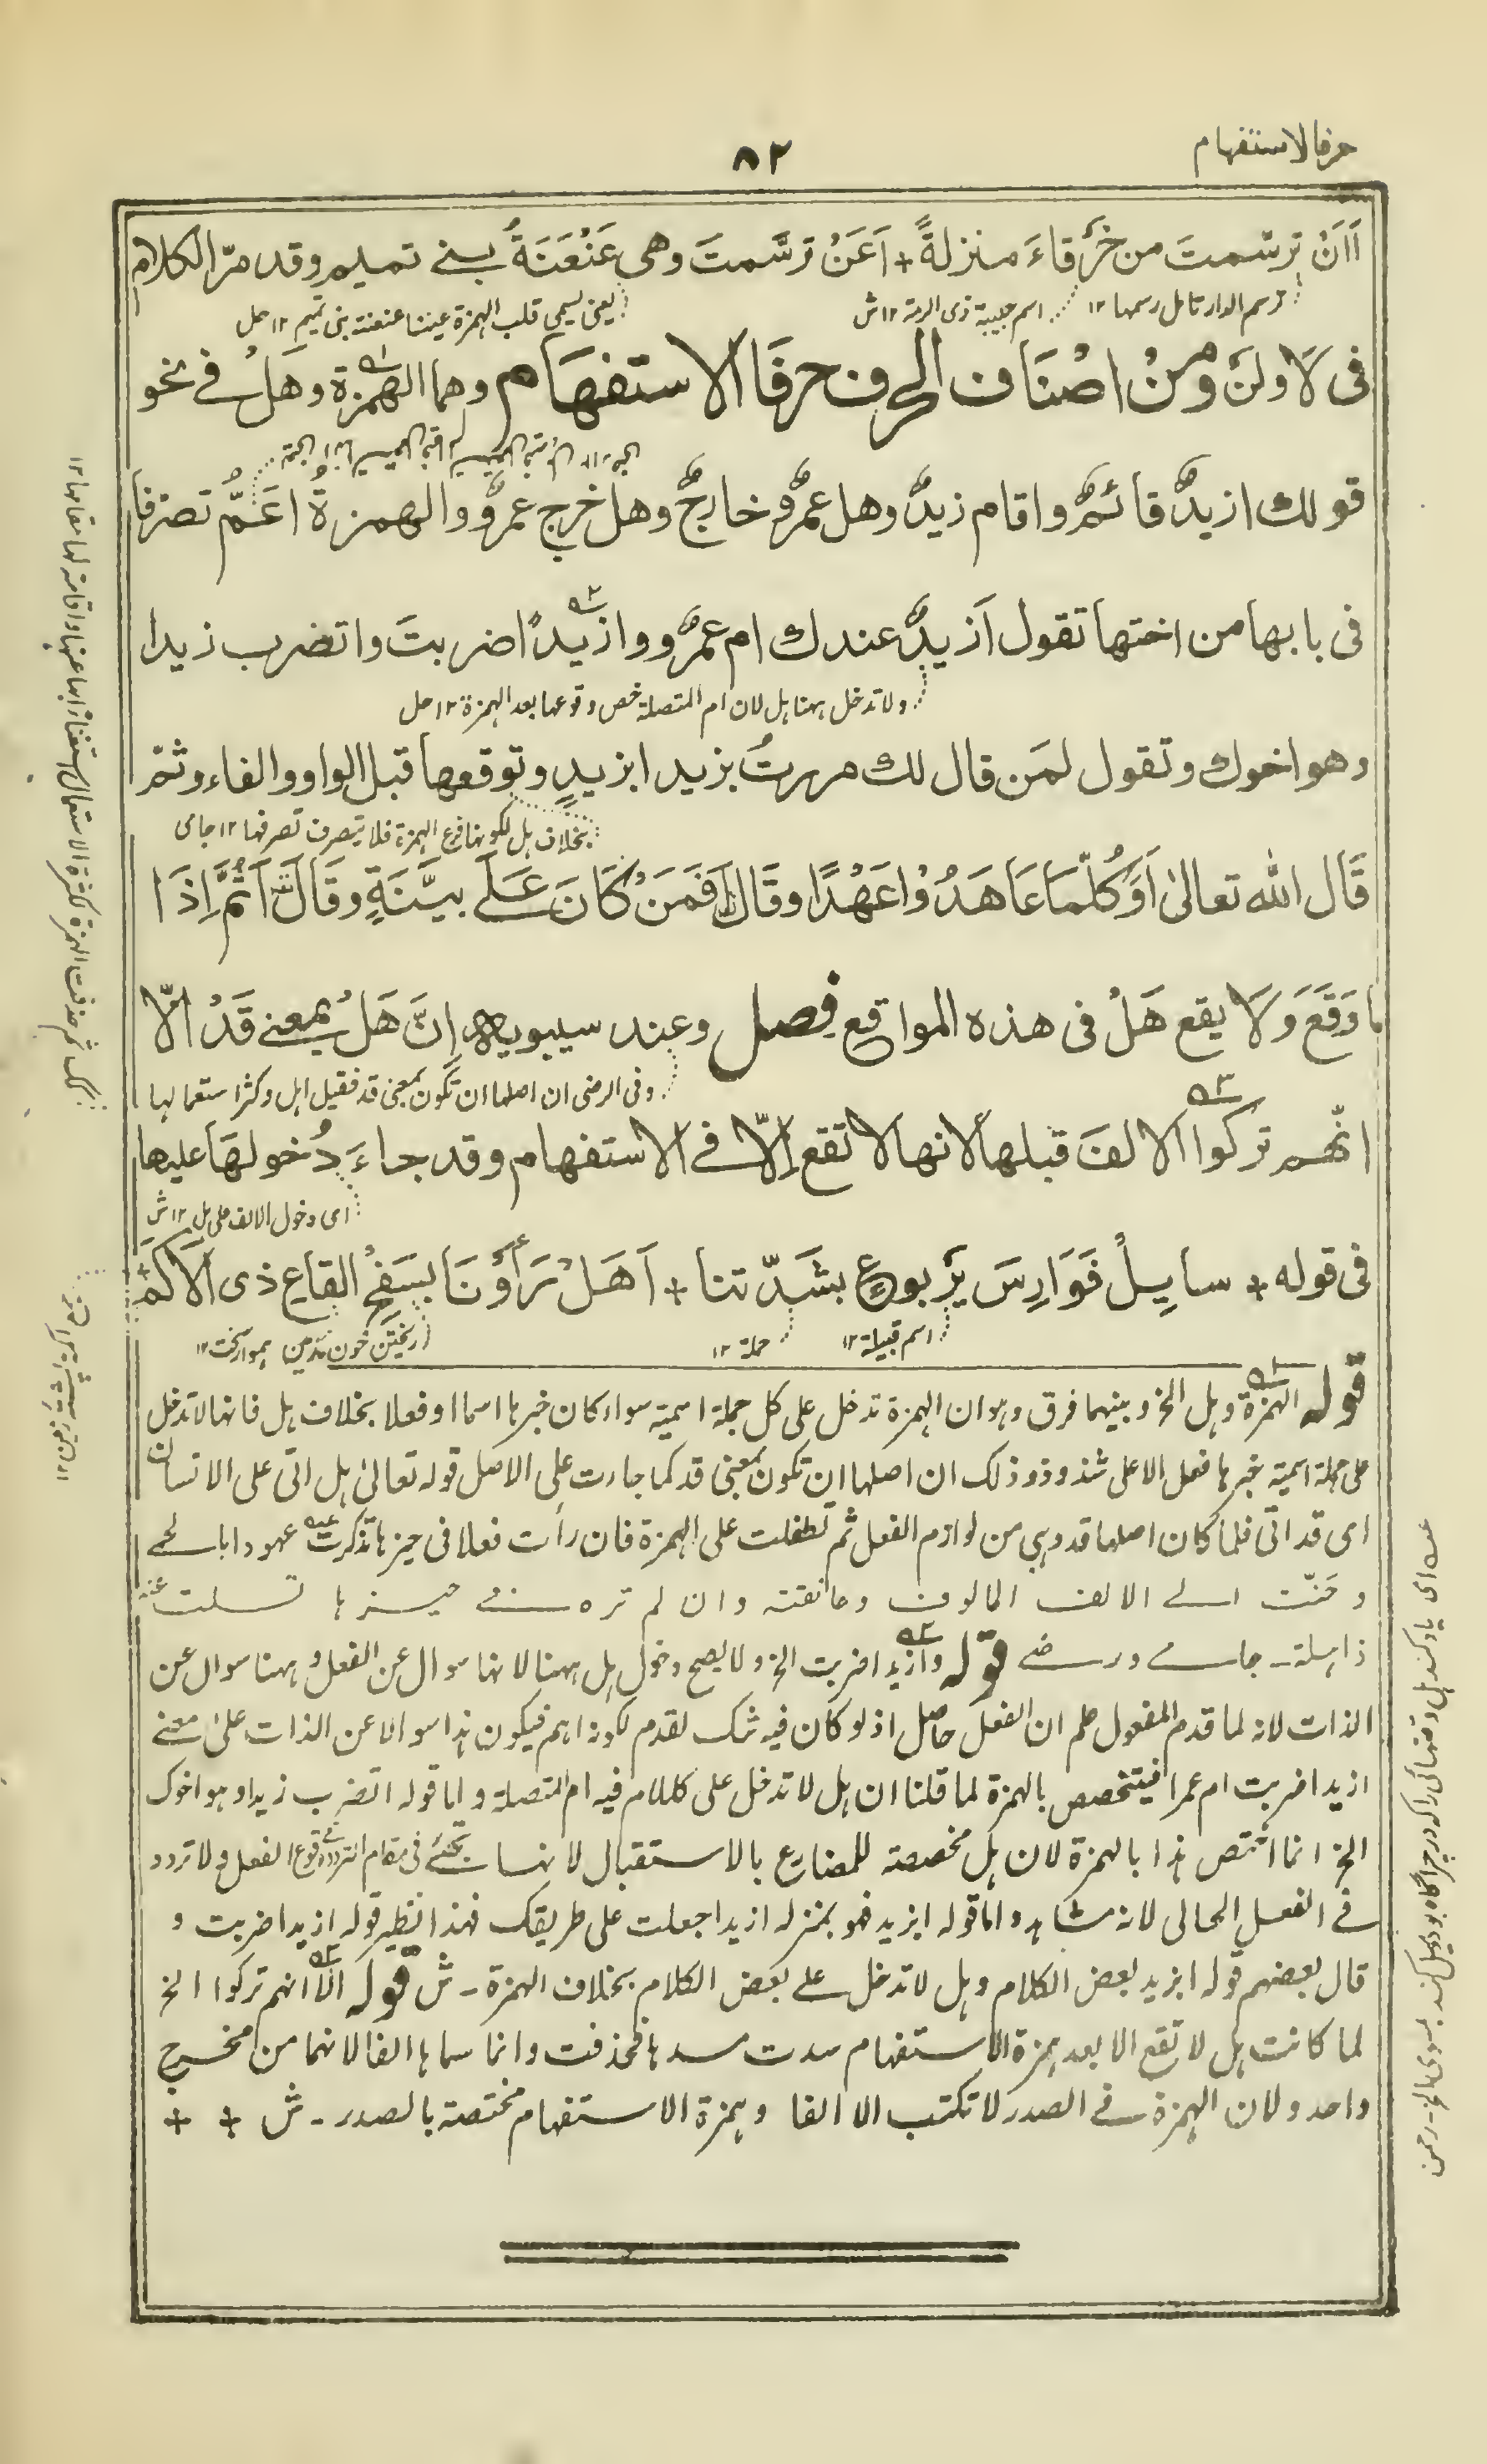 حرفا الاستفهام
٨٢
اَاَنْ ترسّمتَ من خرْقاءَ منزلةً + اَعَنْ ترسَّمتَ وهى عَنْعَنَةُ بنے تميم وقد مرّ الكلام
ترسم الدار تامل رسمها ١٢
اسم حبيبة ذى الرمة ١٢ ش
يعنى يسمى قلب الهمزة عينا عنعنة بنى تميم ١٢ حل
فى لَا ولَنْ ومِنْ اصْنَاف الحرف حرفَا الاستفهَام وهما الهمْزة وهَلْ فے نحو
قولك ازيدٌ قائمٌ واقام زيدٌ وهل عمرٌو خارجٌ وهل خرج عمرٌو والهمزةُ اعَمُّ تصرّفا
فى بابها من اختها تقول اَزيدٌ عندك ام عمرٌو وازيدًا ضربتَ واتضرب زيدا
ولا تدخل ههنا هل لان ام المتصلة خص وقوعها بعد الهمزة ١٢ حل
وهو اخوك وتقول لمَن قال لك مررتُ بزيد ابزيدٍ وتوقعها قبل الواو والفاء وثمّ
بخلاف هل لكونها فرع الهمزة فلا تتصرف تصرفها ١٢ جامى
قَال الله تعالىٰ اَوَكُلّمَا عَاهَدُوْا عَهْدًا وقَالَ اَفَمَنْ كَانَ عَلَے بيّنَةٍ وقَالَ اَثُمَّ اِذَا
مَا وَقَعَ وَلَا يقع هَلْ فى هذه المواقع فصل وعند سيبويه اِنَّ هَلْ بمعنے قَدْ الّا
وفى الرضى ان اصلها ان تكون بمعنى قد فقيل اهل وكثر استعمالها
انّهم تركوا الالفَ قبلها لانها لا تقع اِلّا فے الاستفهام وقد جاءَ دُخولهَا عليها
اى دخول الالف على هل ١٢ ش
فى قوله + سايِلْ فَوَارِسَ يَرْبوعٍ بشَدّتنا + اَهَلْ رَأَوْنَا بسَفحِ القاعِ ذى الاَكَمْ
اسم قبيلة ١٢
حملة ١٢
قوله الهمزة وهل الخ وبينهما فرق وهو ان الهمزة تدخل على كل جملة اسمية سواء كان خبرها اسما او فعلا بخلاف هل فانها لا تدخل
على جملة اسمية خبرها فعل الا على شذوذ وذلك ان اصلها ان تكون بمعنى قد كما جاءت على الاصل قوله تعالىٰ هل اتى على الانسان
اى قد اتى فلما كان اصلها قد وهى من لوازم الفعل ثم تطفلت على الهمزة فان رأت فعلا فى حيزها تذكرت عهودا بالحمے
وحَنّت الے الالف المالوف وعانقته وان لم تره فے حيزها تسلت عنه
ذاهلة ـ جامے ورضے قوله وازيدا ضربت الخ ولا يصح دخول هل ههنا لانها سوال عن الفعل وههنا سوال عن
الذات لانه لما قدم المفعول علم ان الفعل حاصل اذ لو كان فيه شك لقدم لكونه اهم فيكون هذا سوالا عن الذات علىٰ معنے
ازيدا ضربت ام عمرا فيتخصص بالهمزة لما قلنا ان هل لا تدخل على كلام فيه ام المتصلة واما قوله اتضرب زيدا وهو اخوك
الخ انما اختص هذا بالهمزة لان هل مخصصة للمضارع بالاستقبال لانها تجئے فى مقام التردد فى وقوع الفعل ولا تردد
فے الفعل الحالى لانه مشاهد واما قوله ابزيد فهو بمنزلة ازيدا جعلت على طريقك فهذا نظير قوله ازيدا ضربت و
قال بعضهم قوله ابزيد بعض الكلام وهل لا تدخل علے بعض الكلام بخلاف الهمزة ـ ش قوله الا انهم تركوا الخ
لما كانت هل لا تقع الا بعد همزة الاستفهام سدت مسدها فحذفت وانما سماها الفا لانهما من مخرج
واحد ولان الهمزة فے الصدر لا تكتب الا الفا وهمزة الاستفهام مختصة بالصدر ـ ش + +